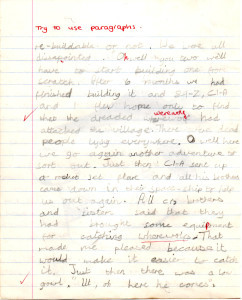 Try to use paragraphs.
re-buildable or not. We were all
disappointed. Oh well you two will
have to start building one from
scratch. After 6 months we had
finished building it and SA-Z, CI-A
and I flew home only to find
that the dreaded werewolf had
attacked the village. There were dead
people lying everywhere. O well here
we go again another adventure to
sort out. Just then CI-A sent up
a jet plane and all his brothers
came down in the spaceship to help
us out again. All CI-A brothers
and sisters said that they
had brought some equipment
for catching werewolfs. That
made me pleased because it
would make it easier to catch
it. Just then there was a low
growl. of here he comes.